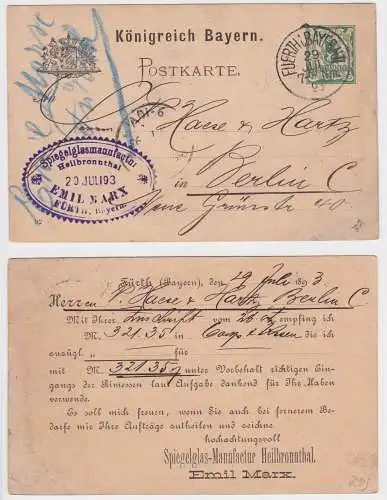 Königreich Bayern.
POSTKARTE.
FUERTH I. BAYERN
An
Haese & Hartz
in Berlin C
Neue Grünstr 40.
Spiegelglasmanufactur
Heilbronnthal
20 JULI 93
EMIL MARX
FÜRTH, Bayern.
Fürth (Bayern), den 19 Juli 1893
Herren P. Haese & Hartz Berlin C.
Mit Ihrer Zuschrift vom empfing ich
M. 321.35 in die ich
auzügl. " für
mit M. 321.35 unter Vorbehalt richtigen Ein-
gangs der Rimessen laut Aufgabe dankend für Ihr Haben
verwende.
Es soll mich freuen, wenn Sie auch bei fernerem Be-
darfe mir Ihre Aufträge zutheilen und zeichne
hochachtungsvoll
Spiegelglas-Manufactur Heilbronnthal.
Emil Marx.